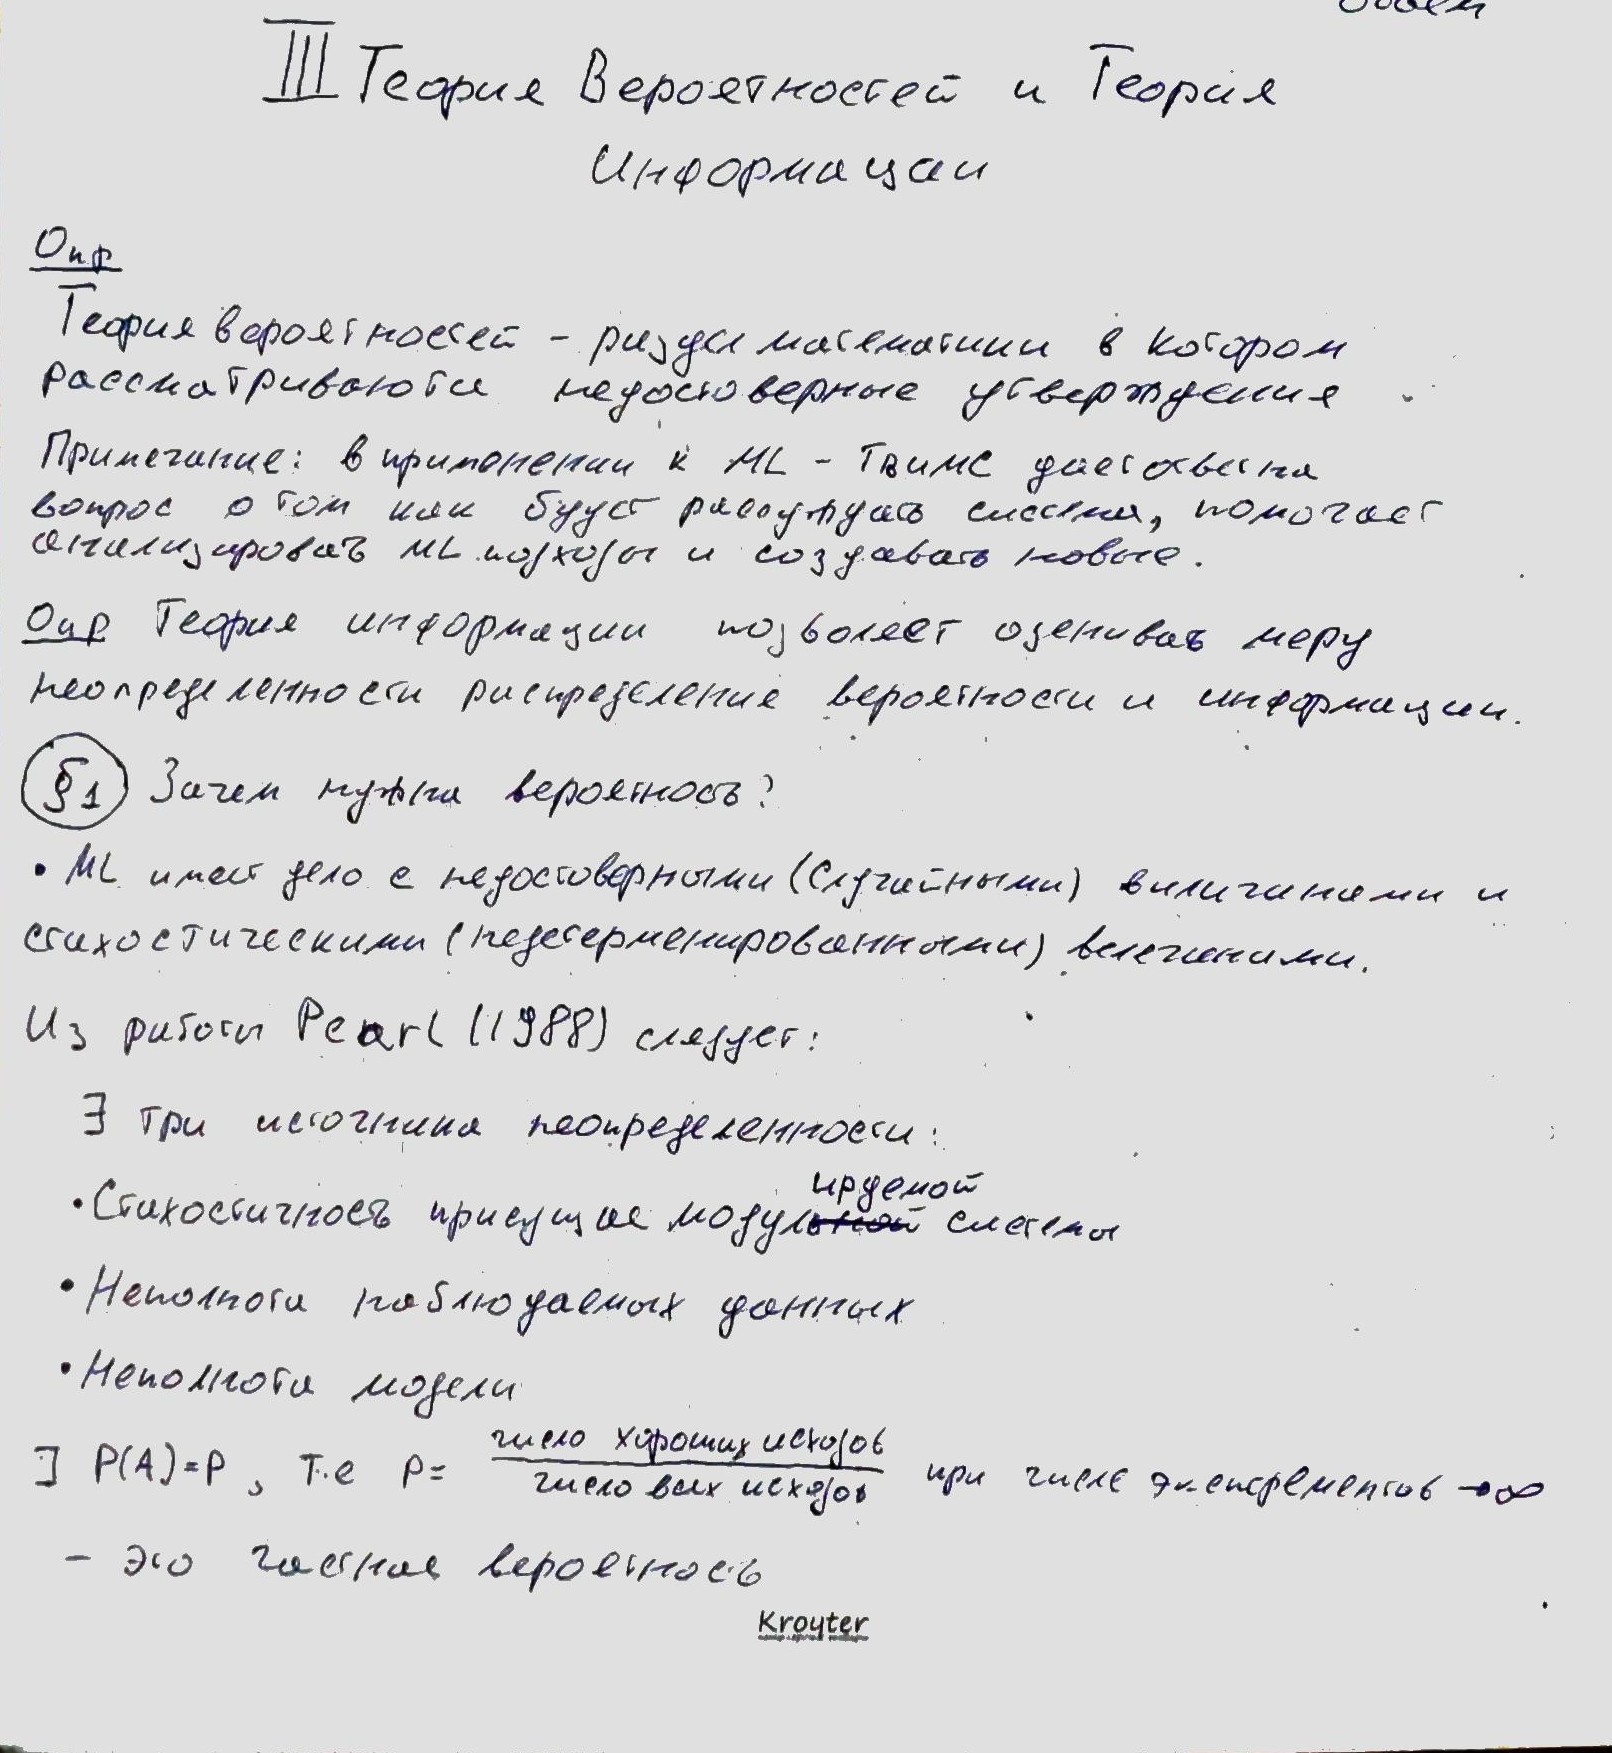 III Теория Вероятностей и Теория
Информации
Опр
Теория вероятностей – раздел математики в котором
рассматриваются недостоверные утверждения
Примечание: в применении к ML – ТВиМС дает ответ на
вопрос о том как будет рассуждать система, помогает
анализировать ML подходы и создавать новые.
Опр Теория информации позволяет оценивать меру
неопределенности распределение вероятности и информации.
§1 Зачем нужна вероятность?
• ML имеет дело с недостоверными (Случайными) виличинами и
стахостическими (недетерменированными) велечинами.
Из работы Pearl (1988) следует:
∃ три источника неопределенности:
ируемой
• Стахостичность присущая модульной системы
• Неполнота наблюдаемых данных
• Неполнота модели
∃ P(A)=P, т.е P= число хороших исходов / число всех исходов при числе эксперементов → ∞
– это частная вероятность
Kroyter